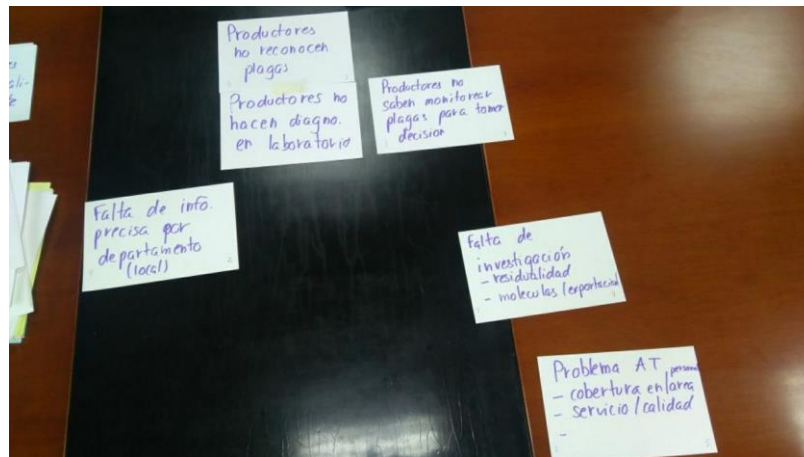 Productores
no reconocen
plagas
Productores no
hacen diagno.
en laboratorio
Productores no
saben monitorear
plagas para tomar
decision
Falta de info.
precisa por
departamento
(local)
Falta de
investigación
- residutilidad
- moleculas/exportacion
Problema AT
- cobertura en/area
- servicio/calidad
-